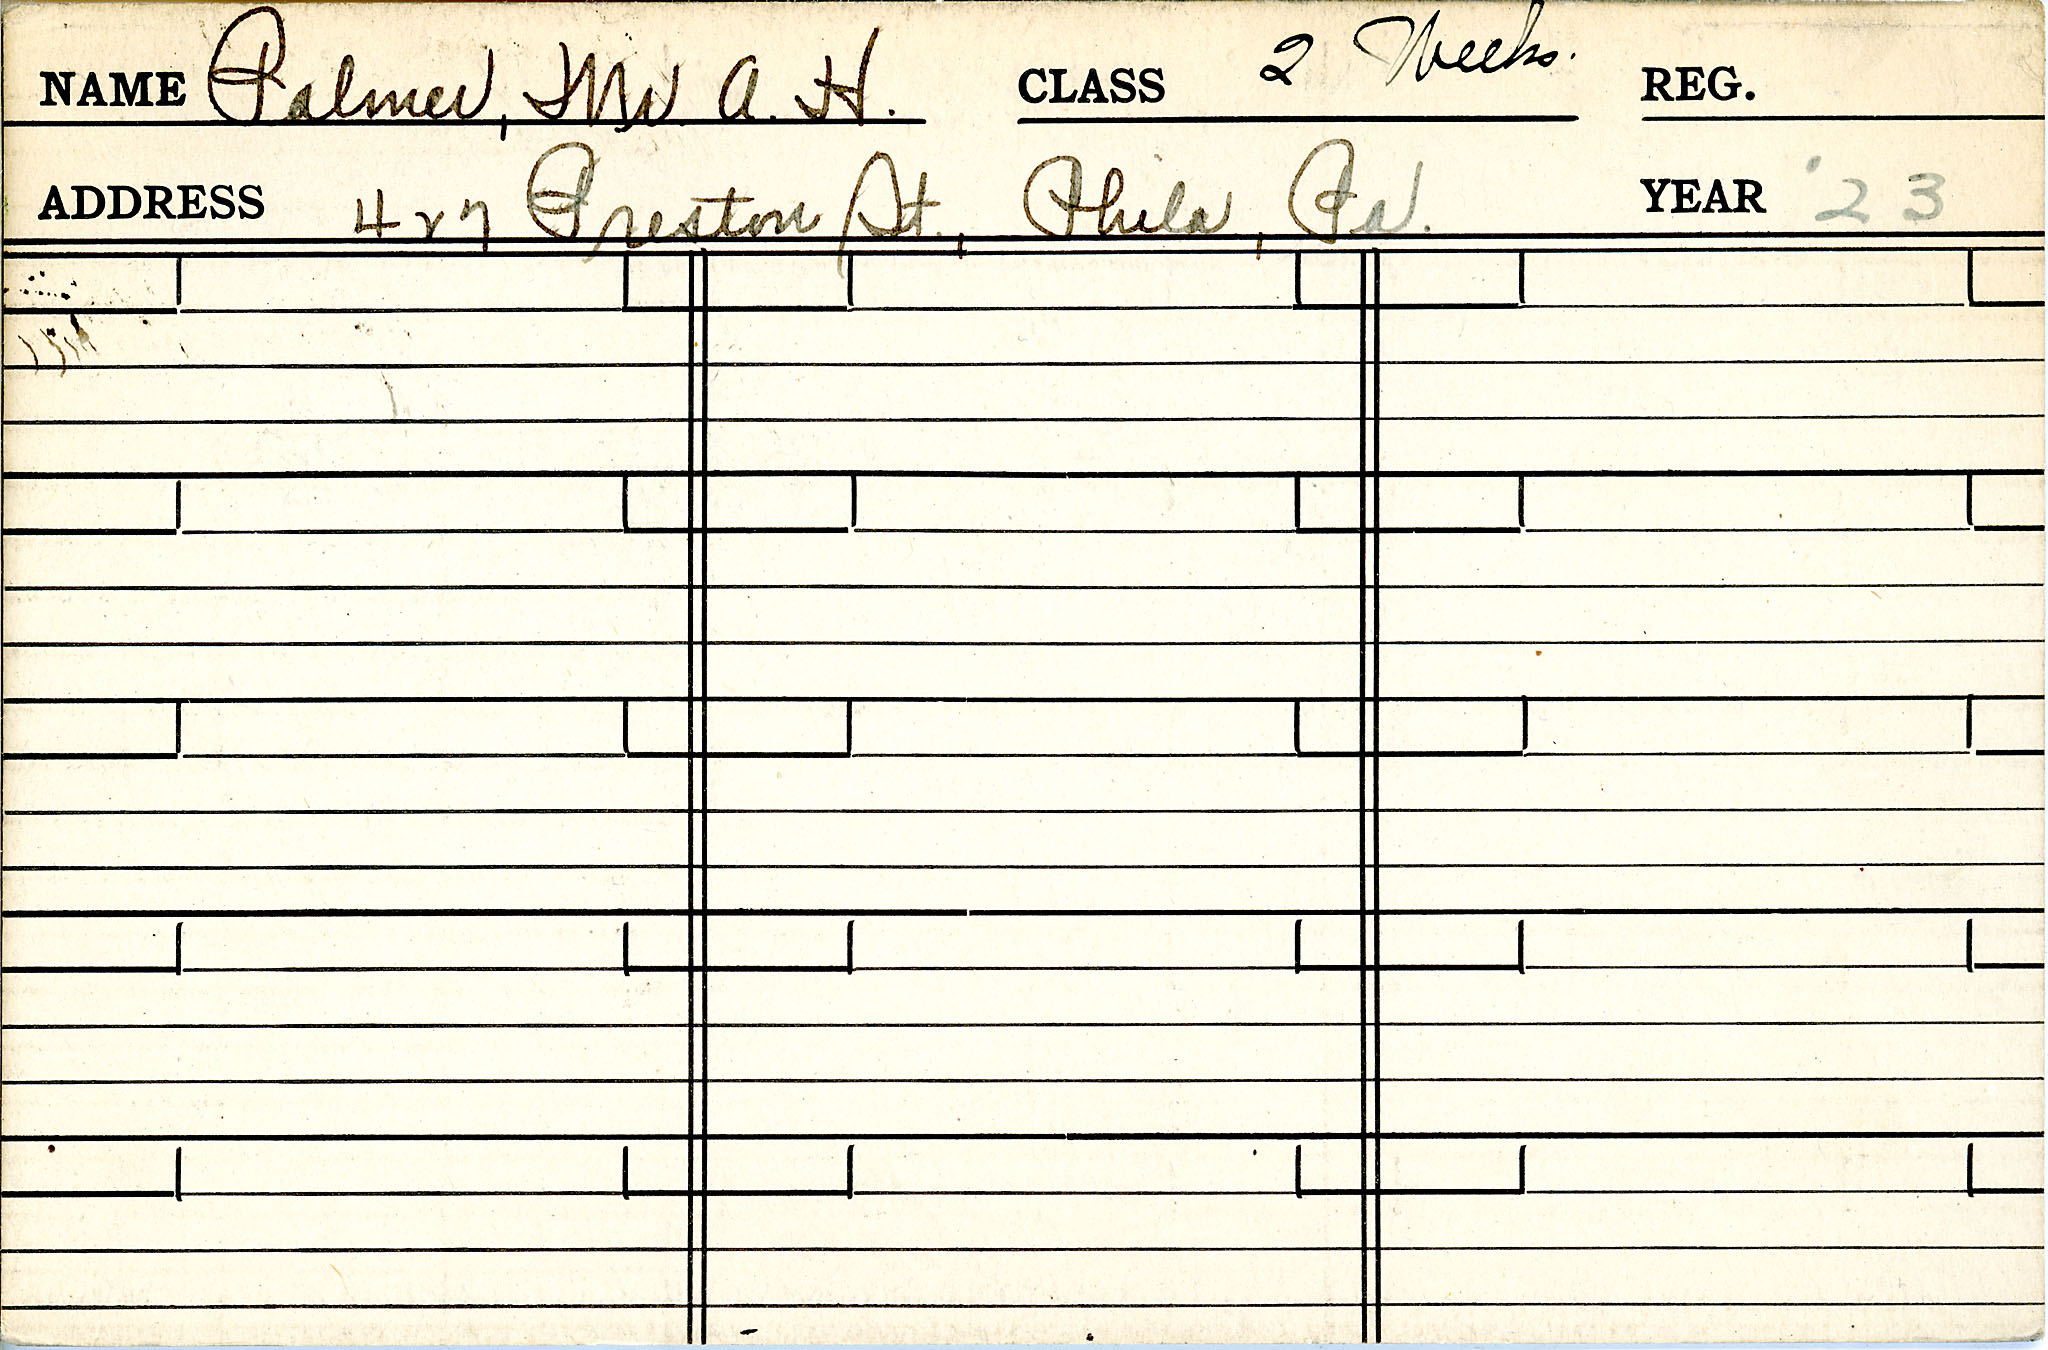 NAME Palmer, Mr. A. H. CLASS 2 Weeks. REG.
ADDRESS 427 Preston St., Phila, Pa. YEAR '23